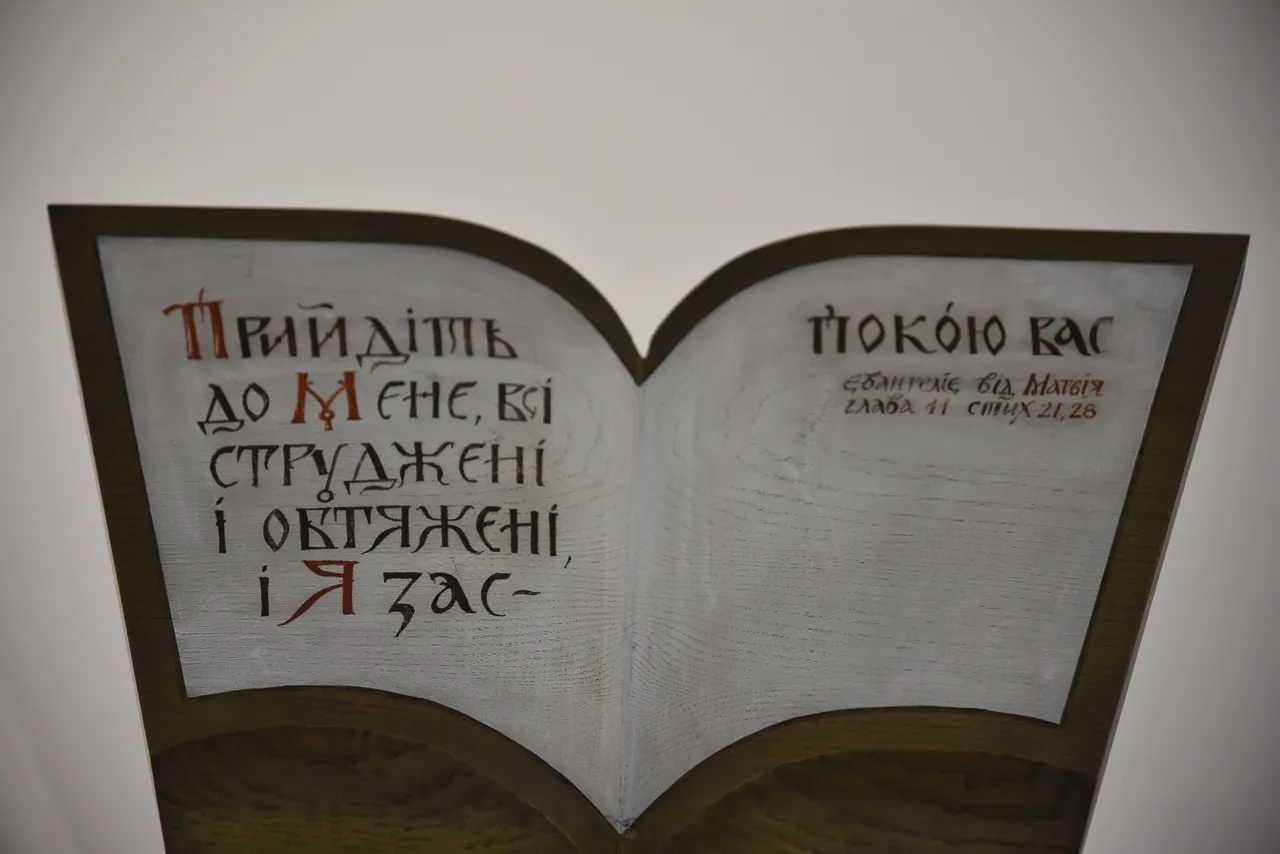 Прийдіть
до Мене, всі
струджені
і обтяжені,
і Я зас-
покóю вас
Євангеліє від Матвія
глава 11 стих 21,28